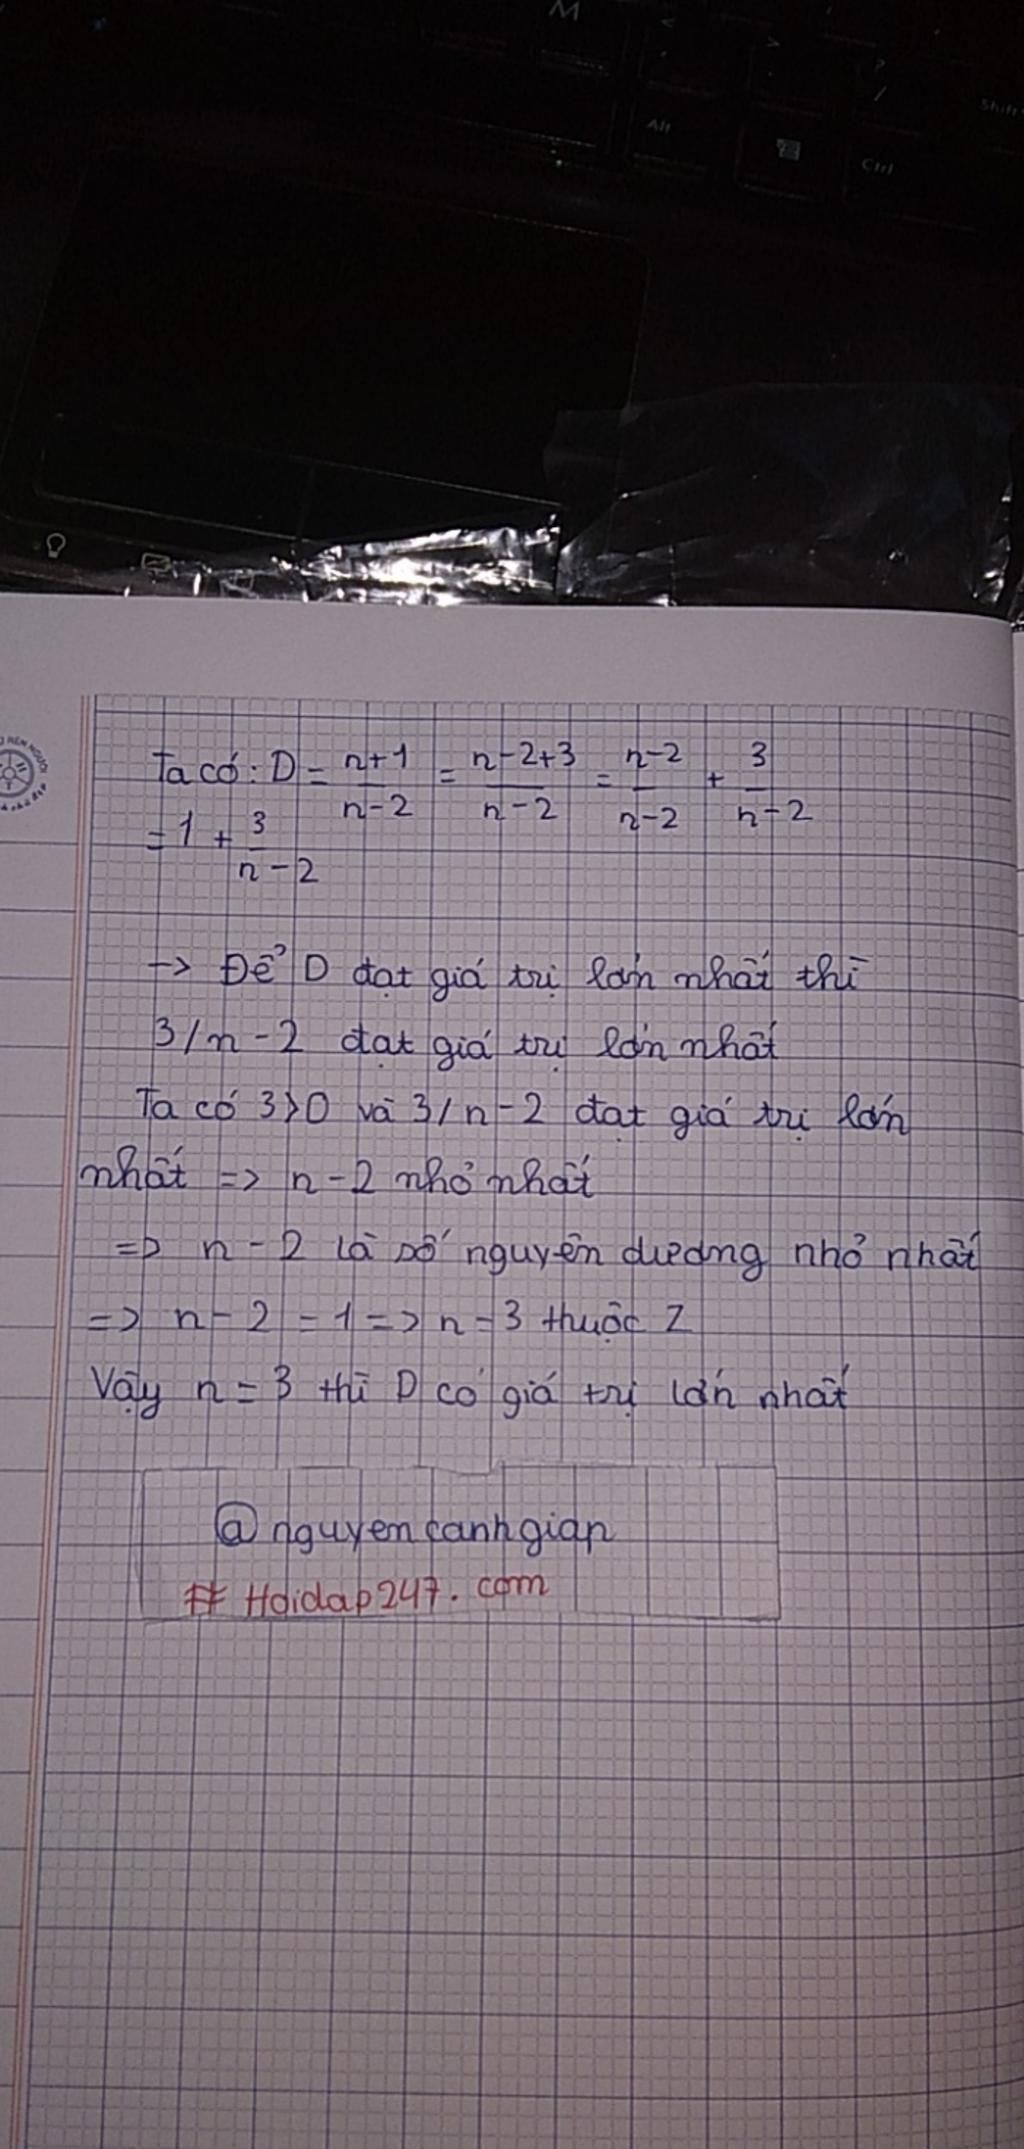 M
Alt
Ctrl
Shift
Ta có : D = n+1/n-2 = n-2+3/n-2 = n-2/n-2 + 3/n-2
= 1 + 3/n-2
-> Để D đạt giá trị lớn nhất thì
3/n-2 đạt giá trị lớn nhất
Ta có 3>0 và 3/n-2 đạt giá trị lớn
nhất => n-2 nhỏ nhất
=> n-2 là số nguyên dương nhỏ nhất
=> n-2 = 1 => n=3 thuộc Z
Vậy n=3 thì D có giá trị lớn nhất
@nguyencanhgiap
# Hoidap247.com